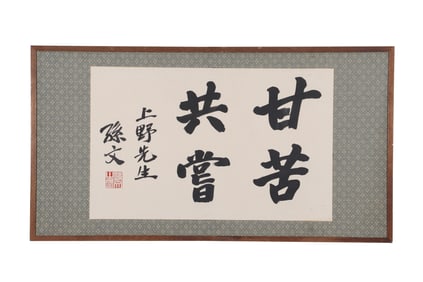 甘苦
共嘗
上野先生
孫文